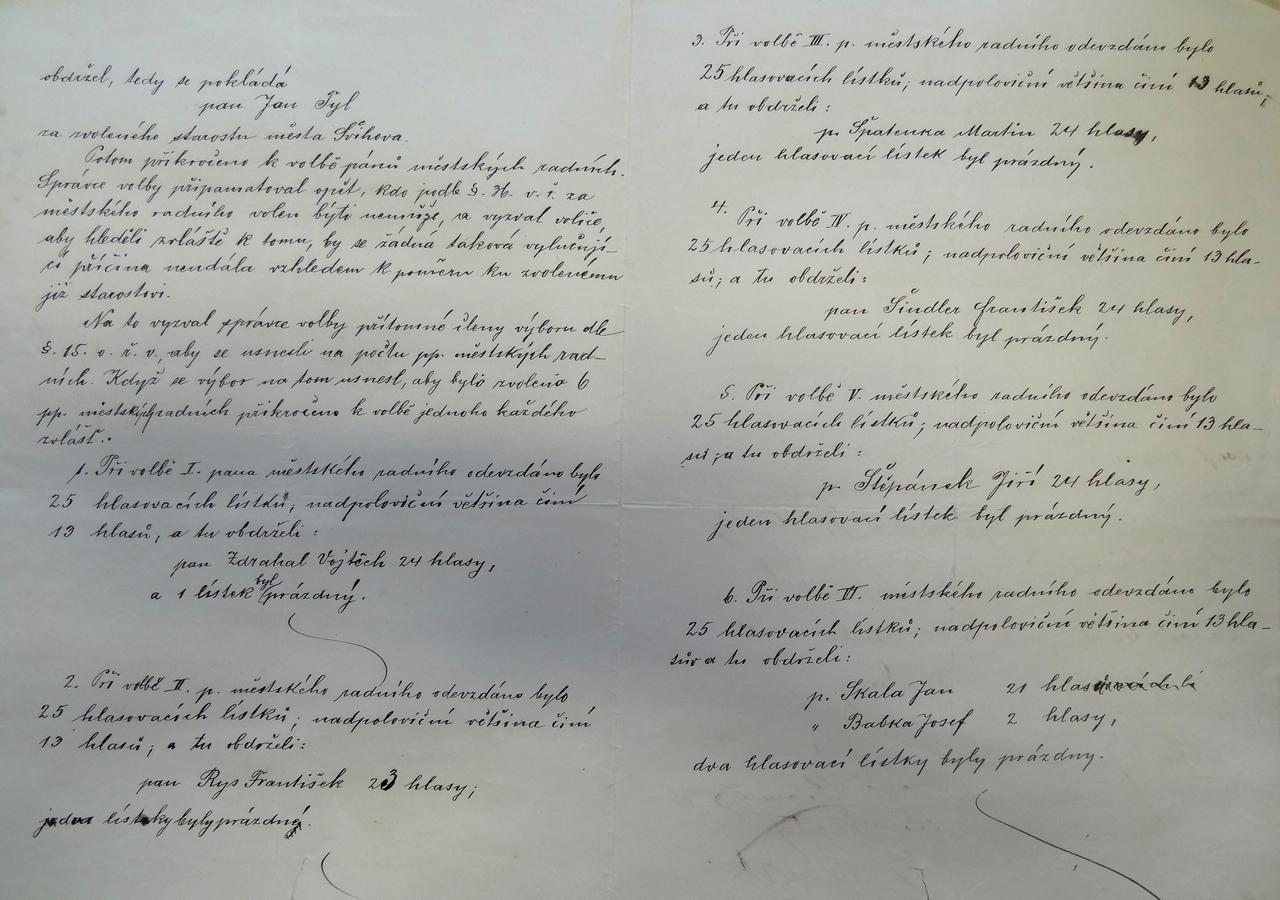 obdržel, tedy se pokládá
pan Jan Tyl
za zvoleného starostu města Švihova.
Potom přikročeno k volbě pánů městských radních.
Správce volby připamatoval opět, kdo podle §. 36. v. ř. za
městského radního volen býti nemůže, a vyzval voliče,
aby hleděli zvláště k tomu, by se žádná taková vylučují-
cí příčina neudála vzhledem k poměru ku zvolenému
již starostovi.
Na to vyzval správce volby přítomné členy výboru dle
§. 15. o. ř. v., aby se usnesli na počtu pp. městských rad-
ních. Když se výbor na tom usnesl, aby bylo zvoleno 6
pp. městských radních přikročeno k volbě jednoho každého
zvlášť.
1. Při volbě I. pana městského radního odevzdáno bylo
25 hlasovacích lístků; nadpoloviční většina činí
13 hlasů, a tu obdrželi:
pan Zdrahal Vojtěch 24 hlasy,
a 1 lístek byl prázdný.
2. Při volbě II. p. městského radního odevzdáno bylo
25 hlasovacích lístků; nadpoloviční většina činí
13 hlasů; a tu obdrželi:
pan Rys František 23 hlasy;
dva lístky byly prázdný.
3. Při volbě III. p. městského radního odevzdáno bylo
25 hlasovacích lístků; nadpoloviční většina činí 13 hlasů;
a tu obdrželi:
p. Špatenka Martin 24 hlasy,
jeden hlasovací lístek byl prázdný.
4. Při volbě IV. p. městského radního odevzdáno bylo
25 hlasovacích lístků; nadpoloviční většina činí 13 hla-
sů; a tu obdrželi:
pan Šindler František 24 hlasy,
jeden hlasovací lístek byl prázdný.
5. Při volbě V. městského radního odevzdáno bylo
25 hlasovacích lístků; nadpoloviční většina činí 13 hla-
sů; a tu obdrželi:
p. Štěpánek Jiří 24 hlasy,
jeden hlasovací lístek byl prázdný.
6. Při volbě VI. městského radního odevzdáno bylo
25 hlasovacích lístků; nadpoloviční většina činí 13 hla-
sů a tu obdrželi:
p. Skala Jan 21 hlas
" Babka Josef 2 hlasy,
dva hlasovací lístky byly prázdny.